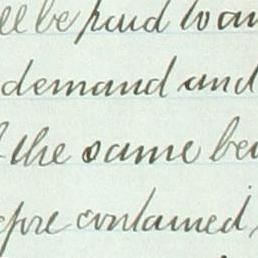 ll be paid to an
demand and
the same bei
efore contained